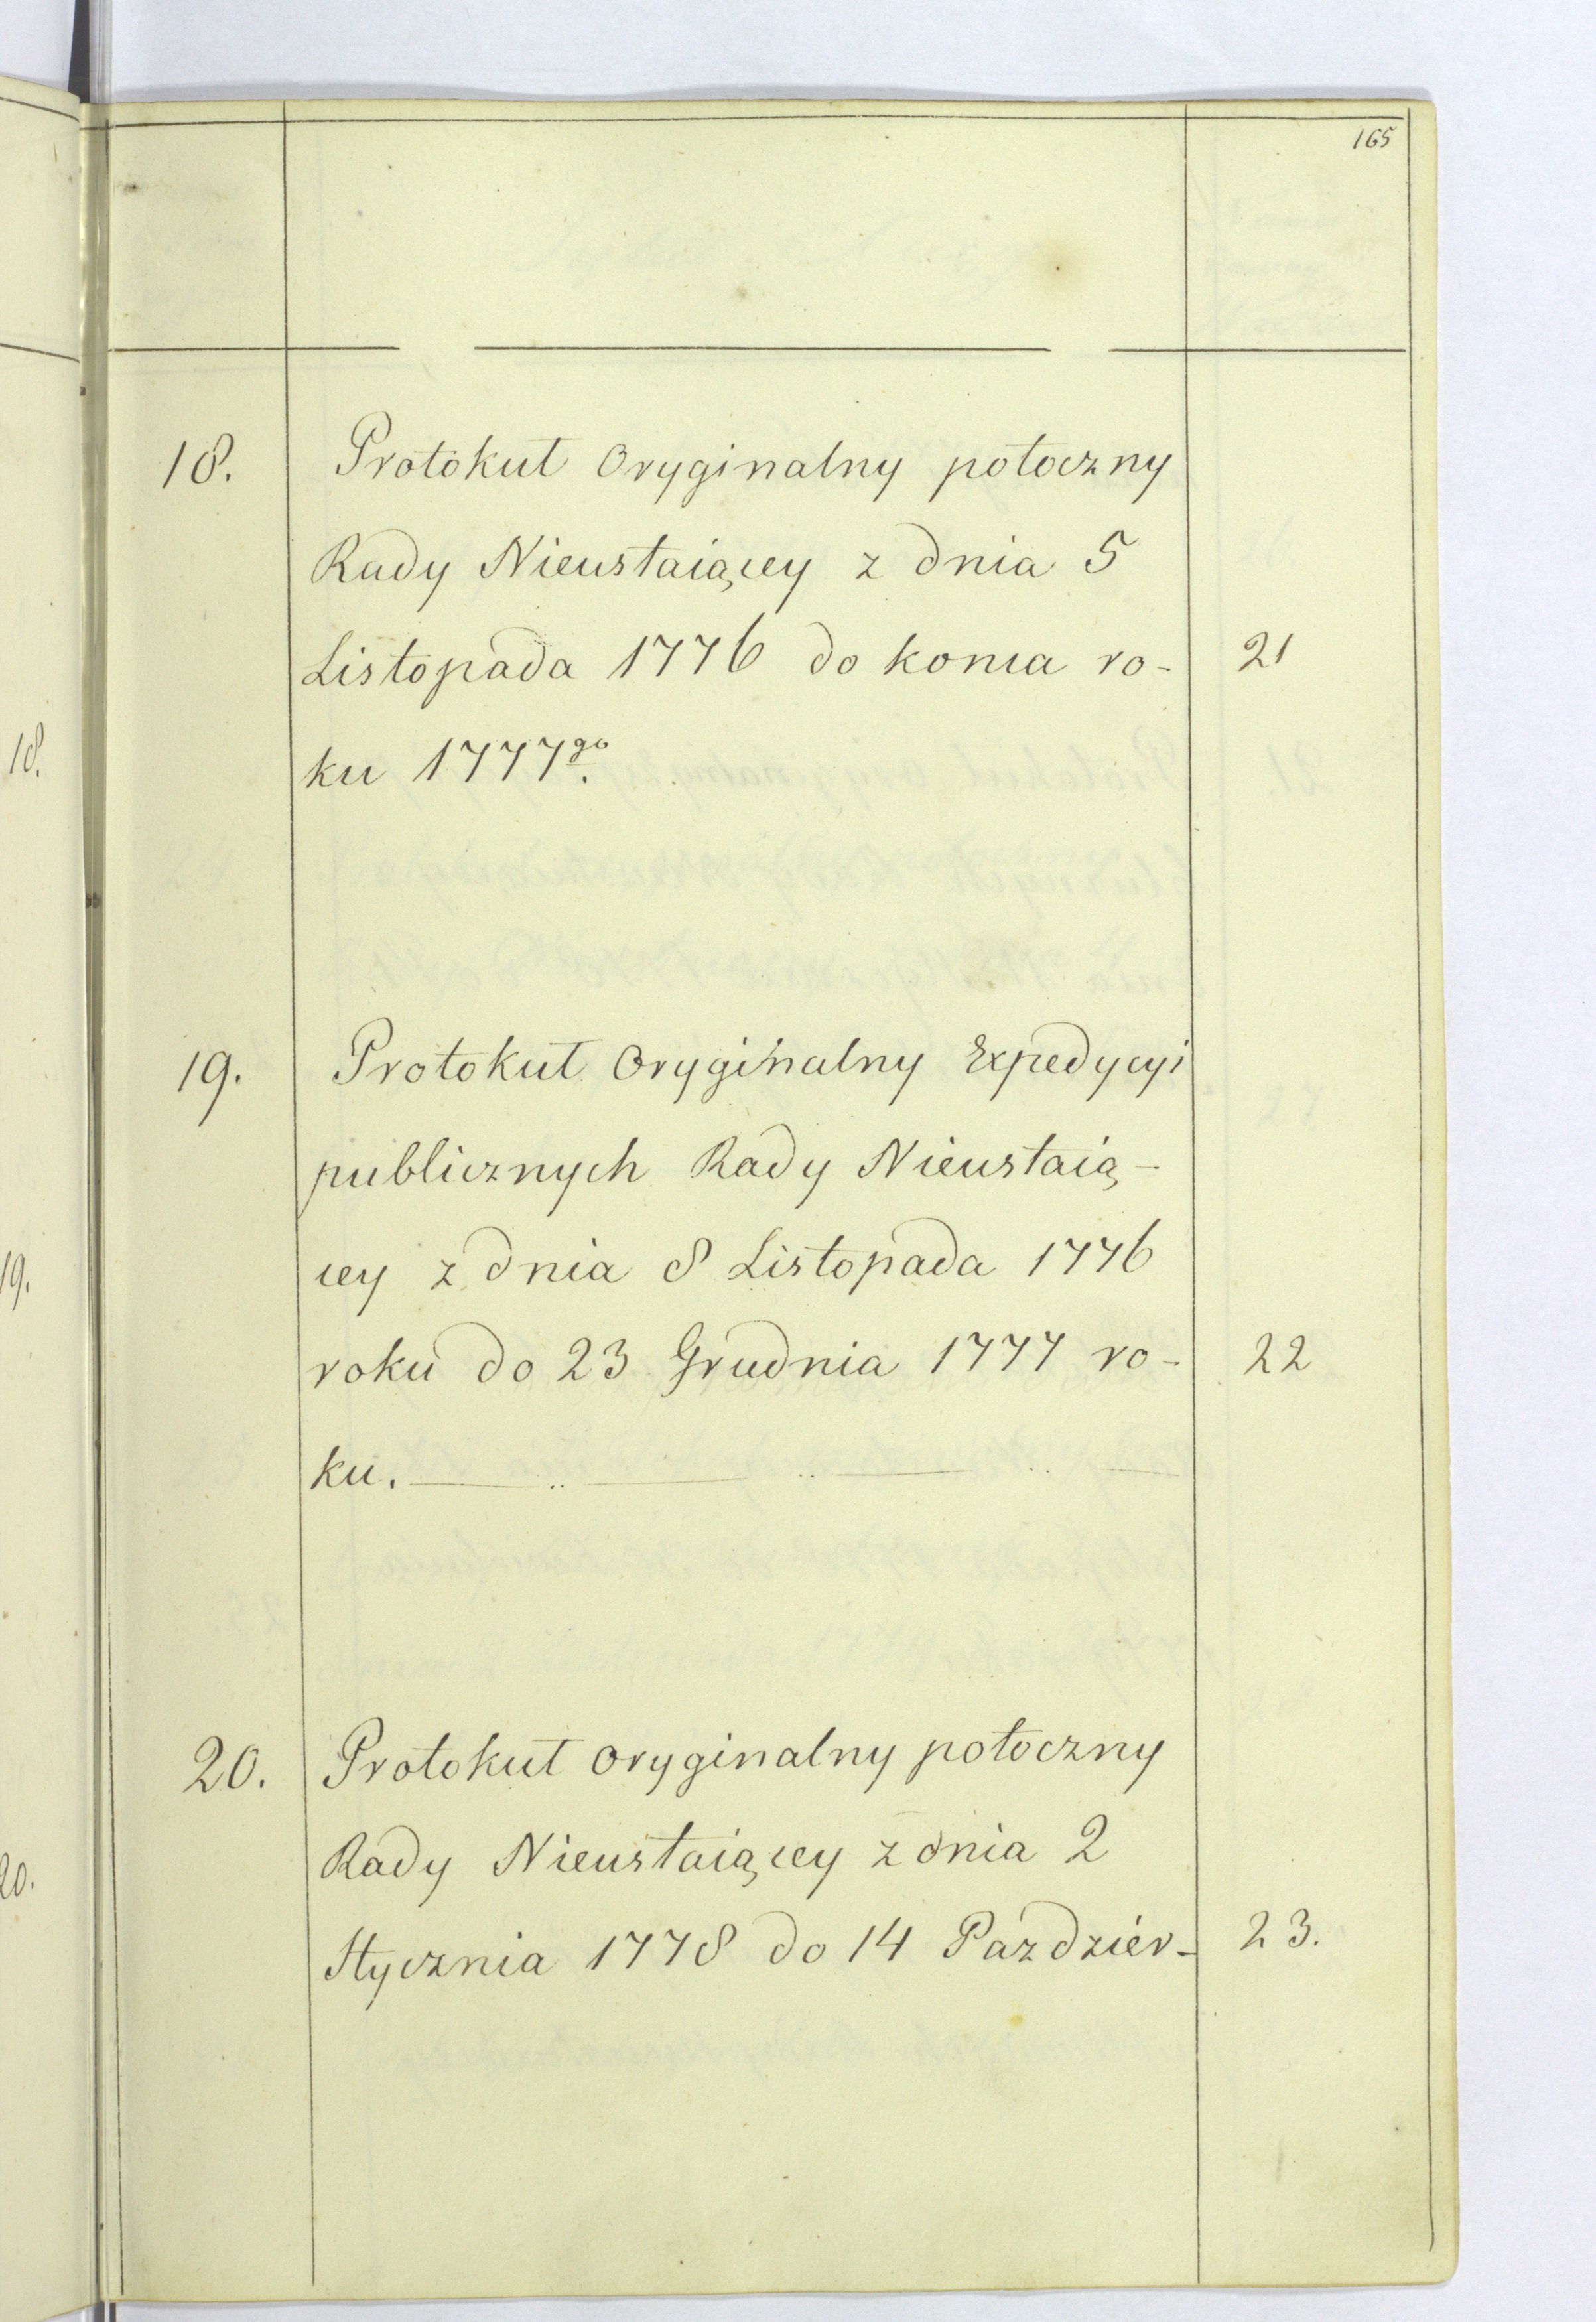 165
18. Protokuł Oryginalny potoczny
Rady Nieustaiącey z dnia 5
Listopada 1776 do konca ro- 21
ku 1777go.
19. Protokuł Oryginalny Expedycyi
publicznych Rady Nieustaią-
cey z dnia 8 Listopada 1776
roku do 23 Grudnia 1777 ro- 22
ku.
20. Protokuł oryginalny potoczny
Rady Nieustaiącey z dnia 2
Stycznia 1778 do 14 Pazdzier- 23.
18.
19.
20.